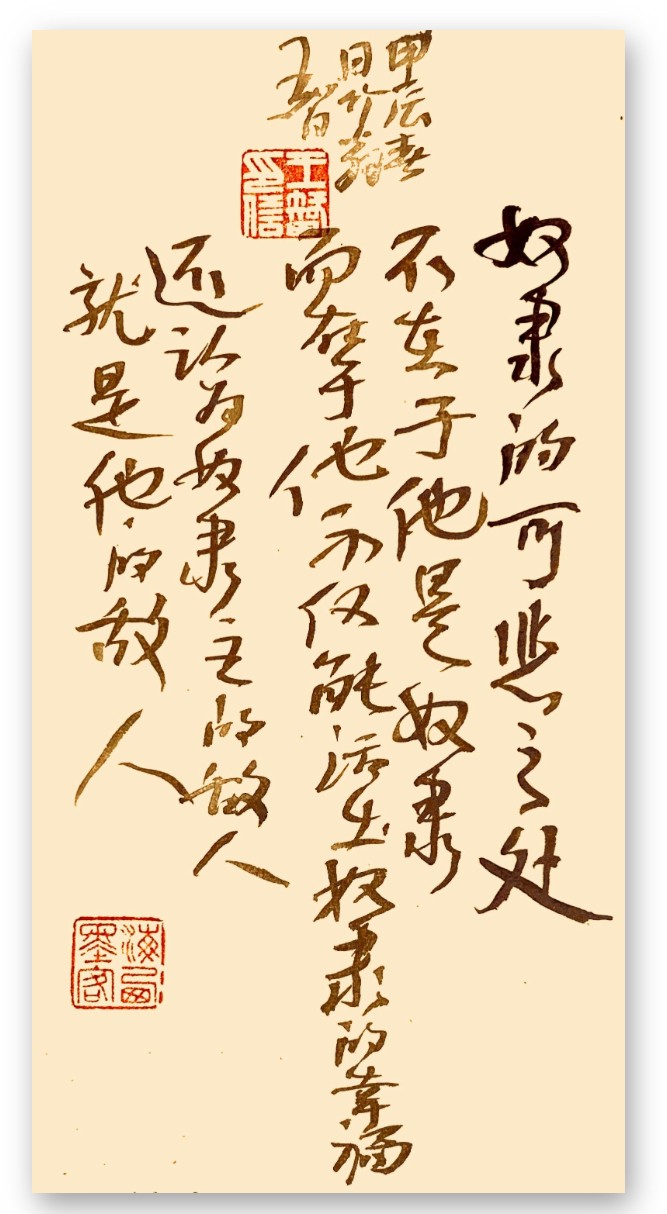 奴隶的可悲之处
不在于他是奴隶
而在于他不仅能活出奴隶的幸福
还认为奴隶主的敌人
就是他的敌人
甲辰春
王智
王智印信
墨客